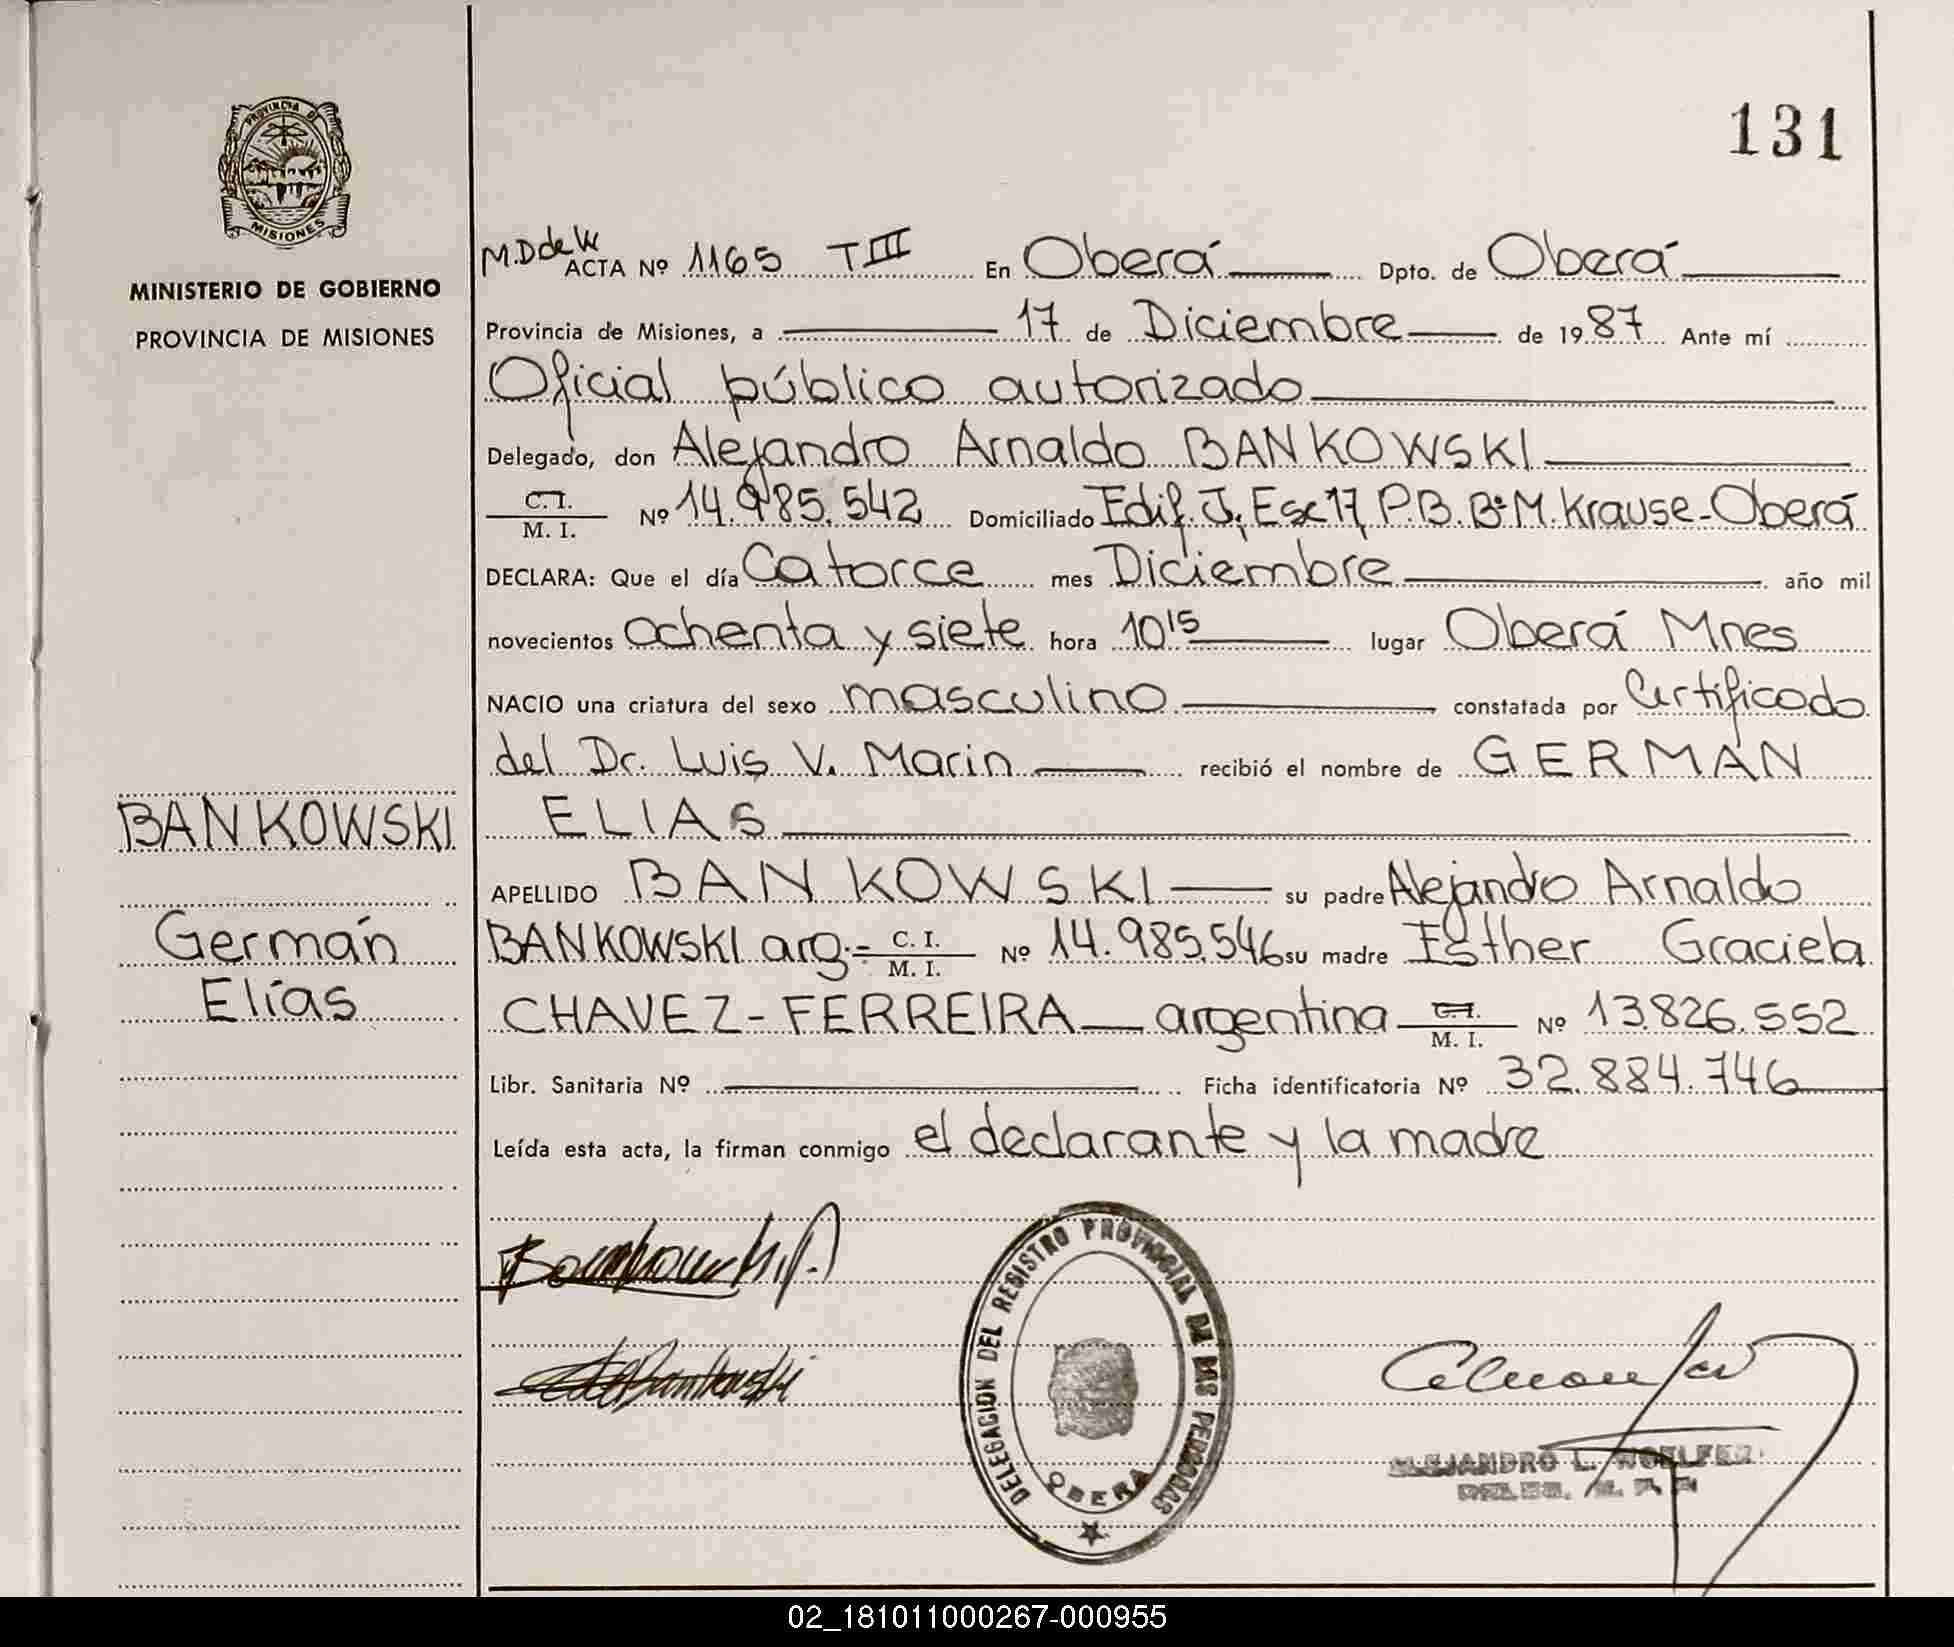 131
PROVINCIA DE
MISIONES
MINISTERIO DE GOBIERNO
PROVINCIA DE MISIONES
M.D de W ACTA Nº 1165 T III En Oberá Dpto. de Oberá
Provincia de Misiones, a 17 de Diciembre de 1987 Ante mí
Oficial público autorizado
Delegado, don Alejandro Arnaldo BANKOWSKI
C.I. M. I. Nº 14.985.542 Domiciliado Edif. J, Esc 17, P.B. Bº M. Krause - Oberá
DECLARA: Que el día Catorce mes Diciembre año mil
novecientos ochenta y siete hora 10 15 lugar Oberá Mnes
NACIO una criatura del sexo masculino constatada por Certificado
del Dr. Luis V. Marin recibió el nombre de GERMÁN
ELIAS
APELLIDO BANKOWSKI su padre Alejandro Arnaldo
BANKOWSKI arg.- C. I. M. I. Nº 14.985.546 su madre Esther Graciela
CHAVEZ-FERREIRA argentina C.I. M. I. Nº 13.826.552
Libr. Sanitaria Nº Ficha identificatoria Nº 32.884.746
Leída esta acta, la firman conmigo el declarante y la madre
BANKOWSKI
Germán
Elías
DELEGACION DEL REGISTRO PROVINCIAL DE LAS PERSONAS
OBERA
ALEJANDRO L. WOELFER
02_181011000267-000955